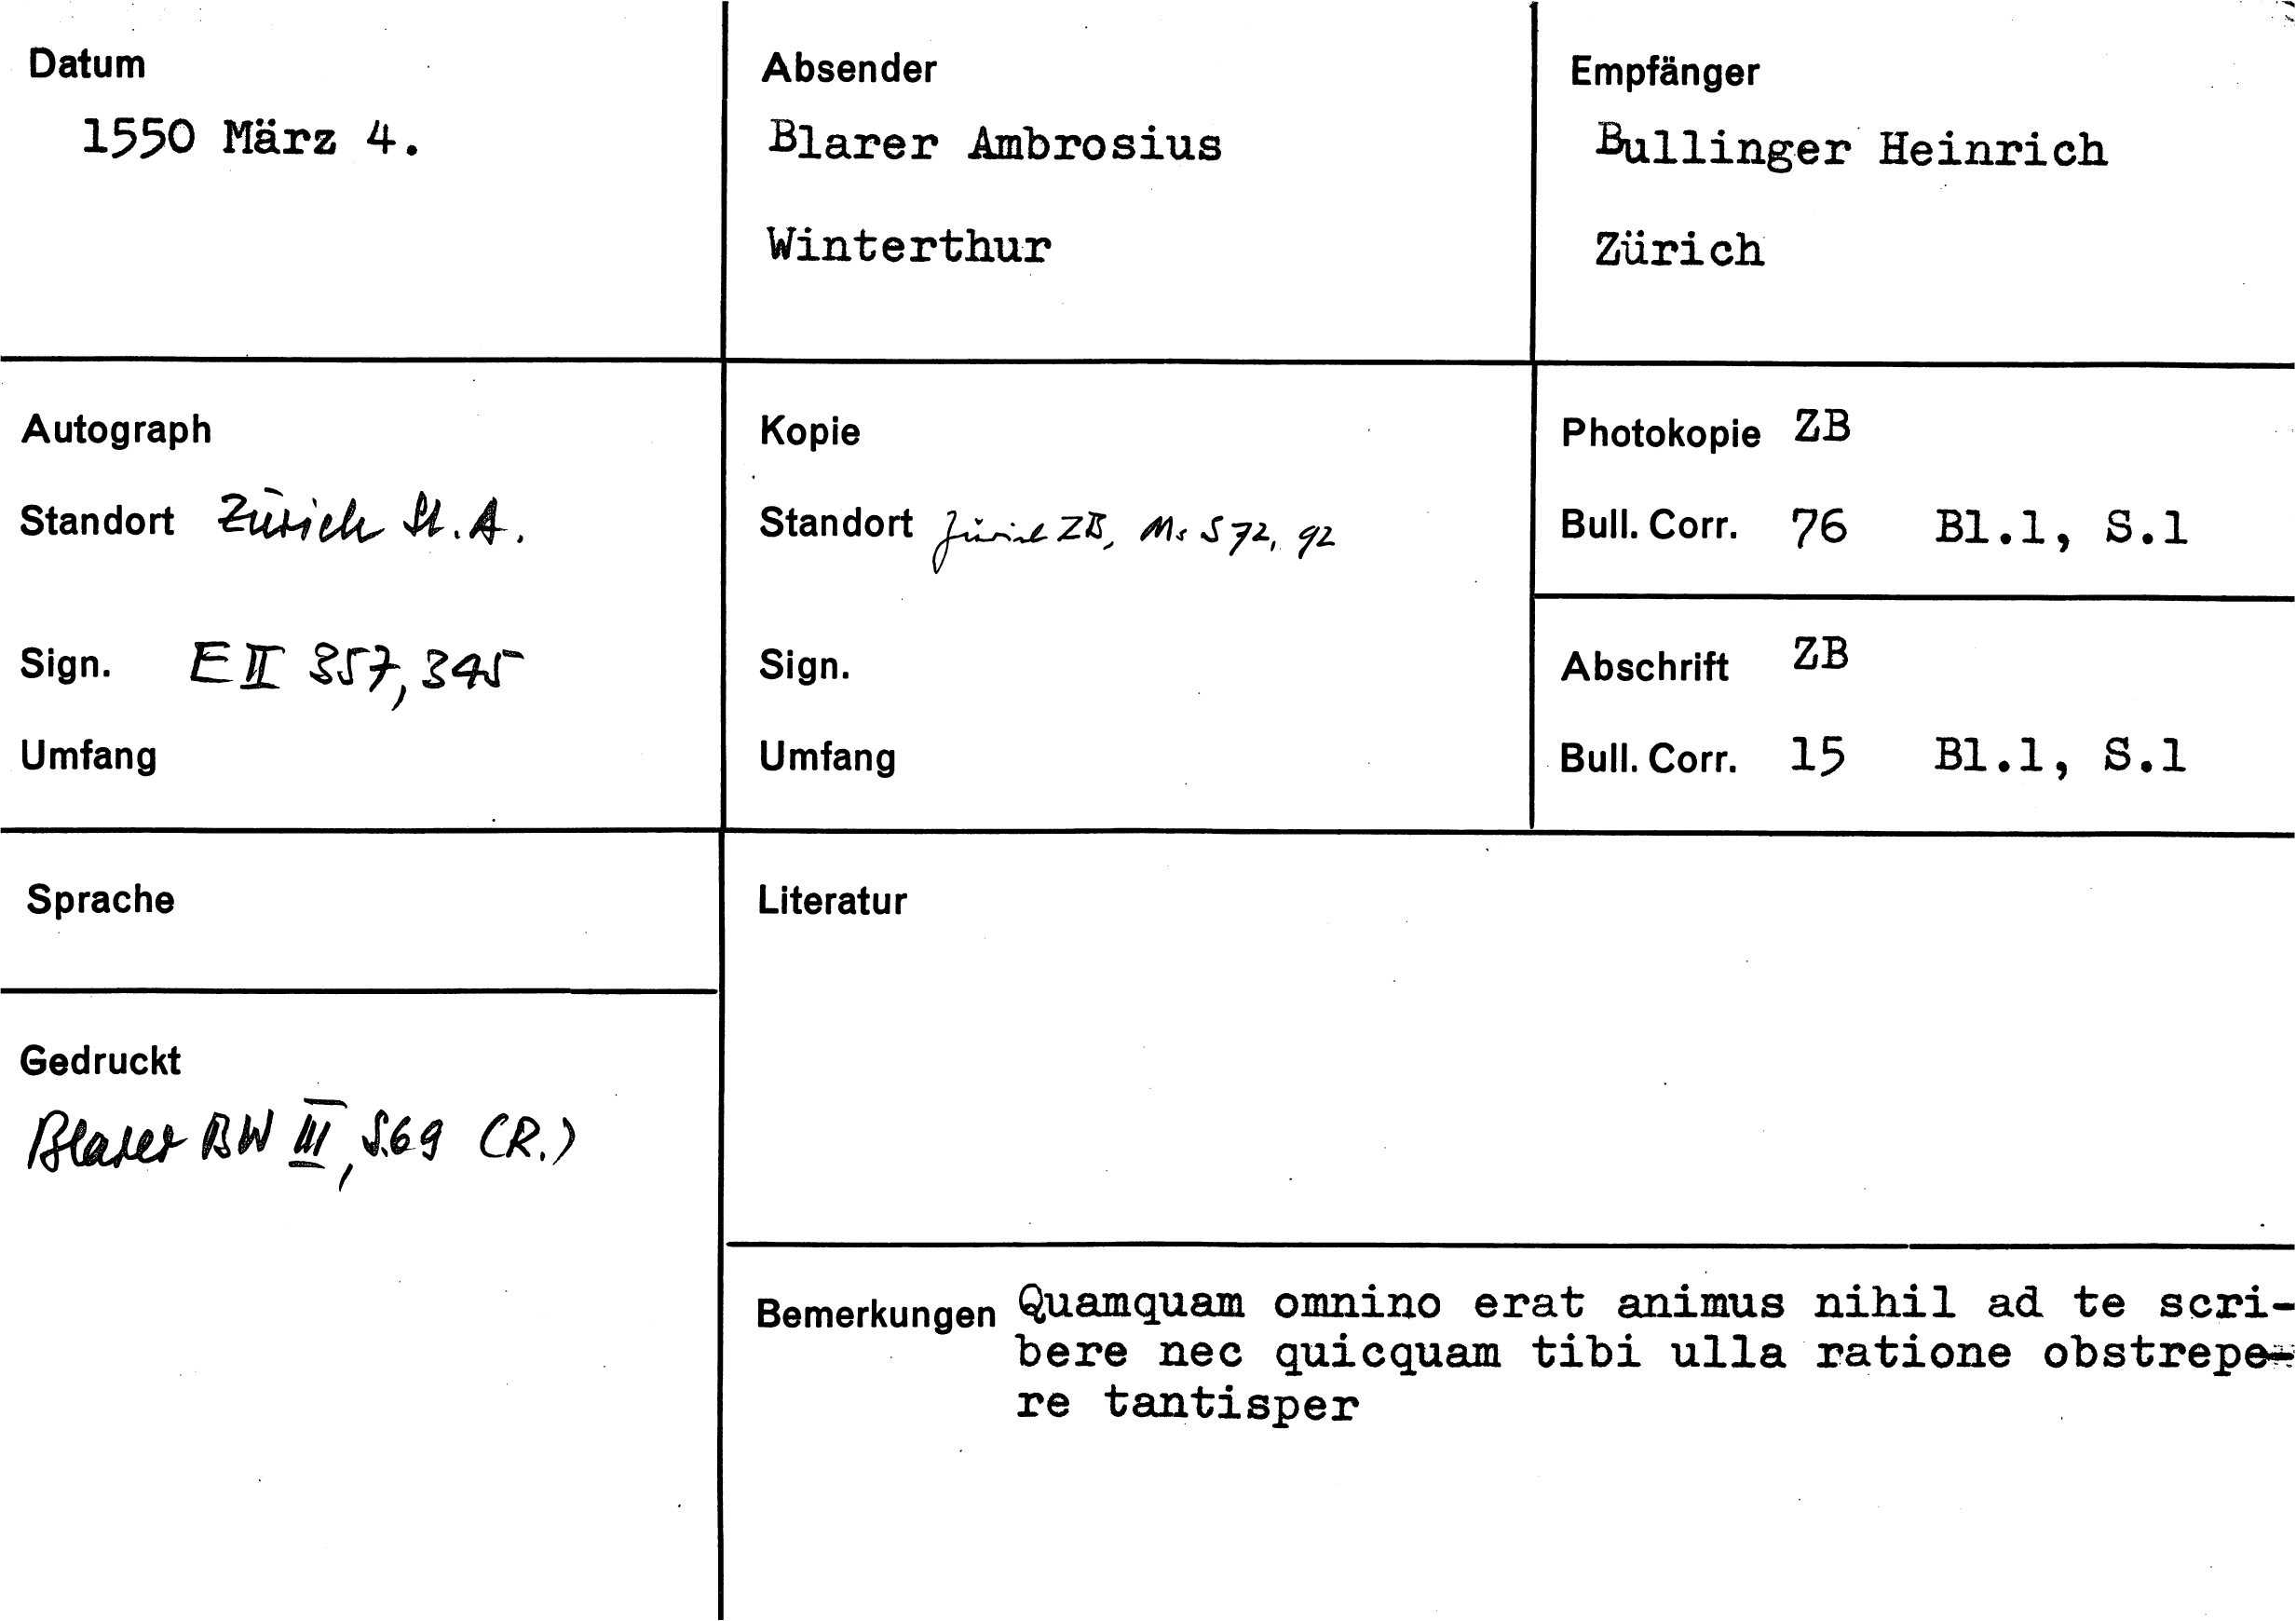 Datum
1550 März 4.
Absender
Blarer Ambrosius
Winterthur
Empfänger
Bullinger Heinrich
Zürich
Autograph
Standort Zürich St.A.
Sign. E II 357, 345
Umfang
Kopie
Standort Zürich ZB, Ms S 72, 92
Sign.
Umfang
Photokopie ZB
Bull. Corr. 76 Bl.1, S.1
Abschrift ZB
Bull. Corr. 15 Bl.1, S.1
Sprache
Gedruckt
Blarer BW III, S.69 (R.)
Literatur
Bemerkungen Quamquam omnino erat animus nihil ad te scri-
bere nec quicquam tibi ulla ratione obstrepe-
re tantisper